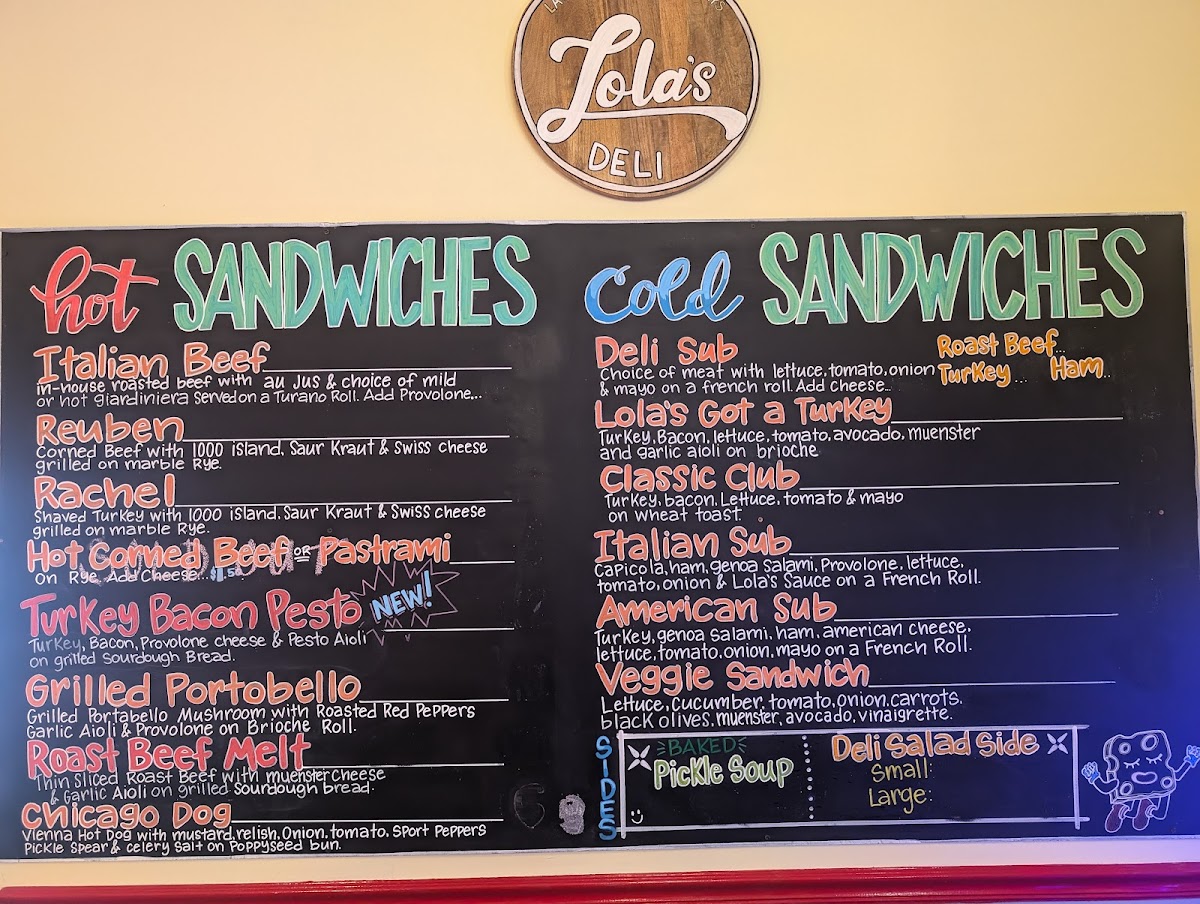 Lola's
DELI
hot SANDWICHES
Italian Beef
in-house roasted beef with au Jus & choice of mild
or hot giardiniera Served on a Turano Roll. Add Provolone...
Reuben
Corned Beef with 1000 island, Saur Kraut & Swiss cheese
grilled on marble Rye.
Rachel
Shaved Turkey with 1000 island, Saur Kraut & Swiss cheese
grilled on marble Rye.
Hot Corned Beef OR Pastrami
on Rye Add Cheese...$1.50
Turkey Bacon Pesto NEW!
Turkey, Bacon, Provolone cheese & Pesto Aioli
on grilled Sourdough Bread.
Grilled Portobello
Grilled Portabello Mushroom with Roasted Red Peppers
Garlic Aioli & Provolone on Brioche Roll.
Roast Beef Melt
Thin Sliced Roast Beef with muenster cheese
& Garlic Aioli on grilled Sourdough bread.
Chicago Dog
Vienna Hot Dog with mustard, relish, Onion, tomato, Sport Peppers
Pickle Spear & celery salt on Poppyseed bun.
cold SANDWICHES
Deli Sub
Choice of meat with lettuce, tomato, onion
& mayo on a french roll. Add cheese...
Roast Beef...
Turkey... Ham...
Lola's Got a Turkey
Turkey, Bacon, lettuce, tomato, avocado, muenster
and garlic aioli on brioche
Classic Club
Turkey, bacon, Lettuce, tomato & mayo
on wheat toast
Italian Sub
Capicola, ham, genoa salami, Provolone, lettuce,
tomato, onion & Lola's Sauce on a French Roll.
American Sub
Turkey, genoa salami, ham, american cheese,
lettuce, tomato, onion, mayo on a French Roll.
Veggie Sandwich
Lettuce, cucumber, tomato, onion, carrots,
black olives, muenster, avocado, vinaigrette.
SIDES
BAKED
Pickle Soup
Deli Salad Side
Small:
Large: